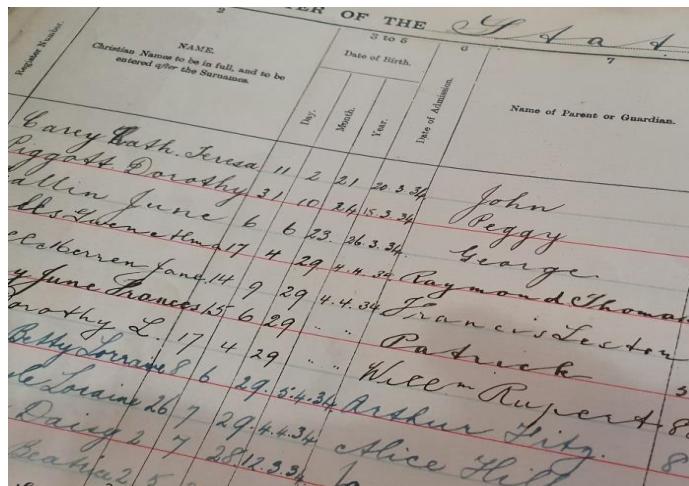 TER OF THE Stat
2 3 to 5 6 7
Register Number.
NAME.
Christian Names to be in full, and to be
entered after the Surnames.
Date of Birth.
Day. Month. Year.
Date of Admission.
Name of Parent or Guardian.
Carey Kath. Teresa 11 2 21 20.3.34 John
Piggott Dorothy 31 10 24 15.3.34 Peggy
allin June 6 6 23 26.3.34 George
lls Gwene 17 4 29 4.4.34 Raymond Thomas
Jane 14 9 29 4.4.34 Francis
y June Frances 15 6 29 " " Patrick
orothy L. 17 4 29 " " Willm Rupert
Betty Lorraine 8 6 29 5.4.34 Arthur Fitz.
le Loraine 26 7 29 4.4.34 Alice Hill
Daisy 2 7 28 12.3.34
Beatrice 2 5